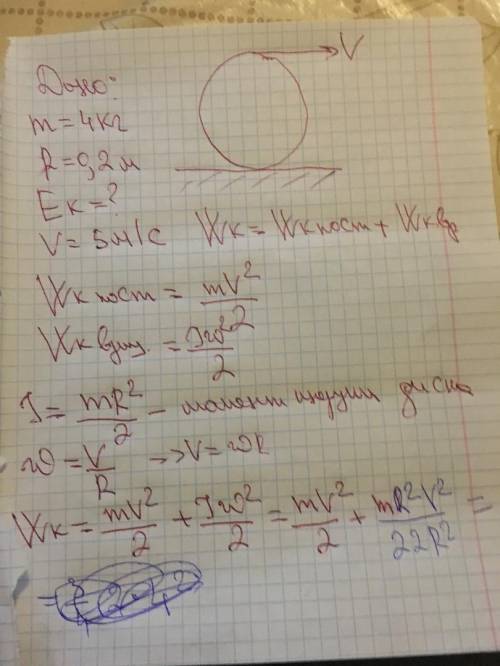 V
Дано:
m = 4 кг
R = 0,2 м
Eк = ?
V = 5 м/с Wк = Wк пост + Wк вр
Wк пост = mV²/2
Wк вращ. = Jω²/2
J = mR²/2 – момент инерции диска
ω = V/R → V = ωR
Wк = mV²/2 + Jω²/2 = mV²/2 + mR²V²/22R² =
=